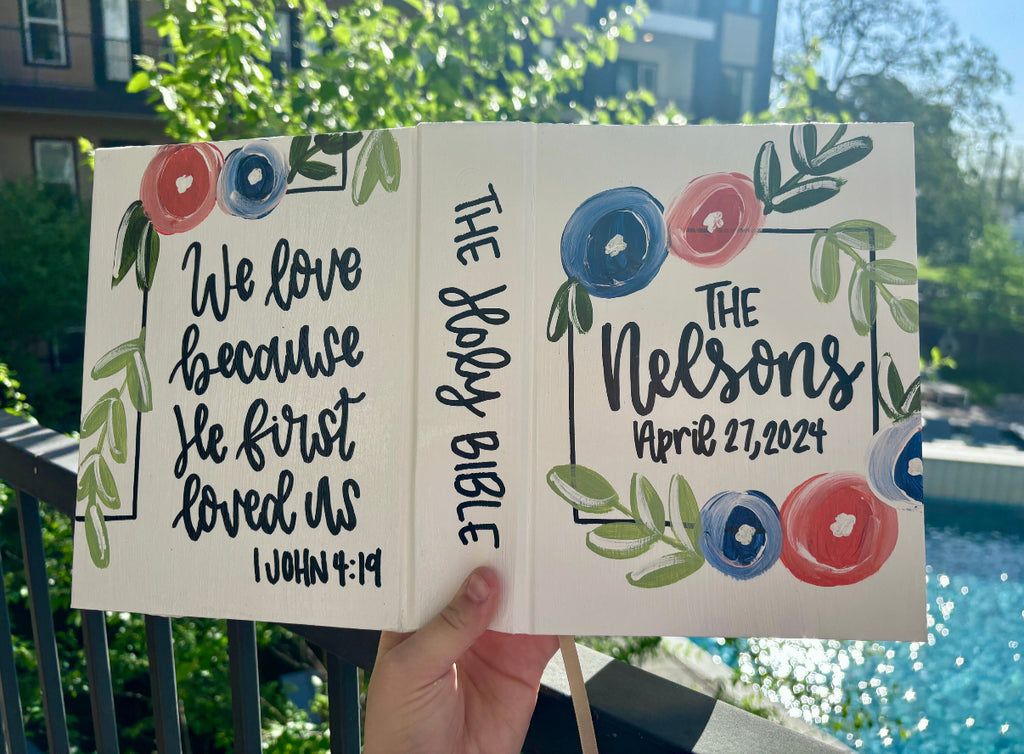 We love
because
He first
loved us
1 JOHN 4:19
THE Holy BIBLE
THE
Nelsons
April 27, 2024